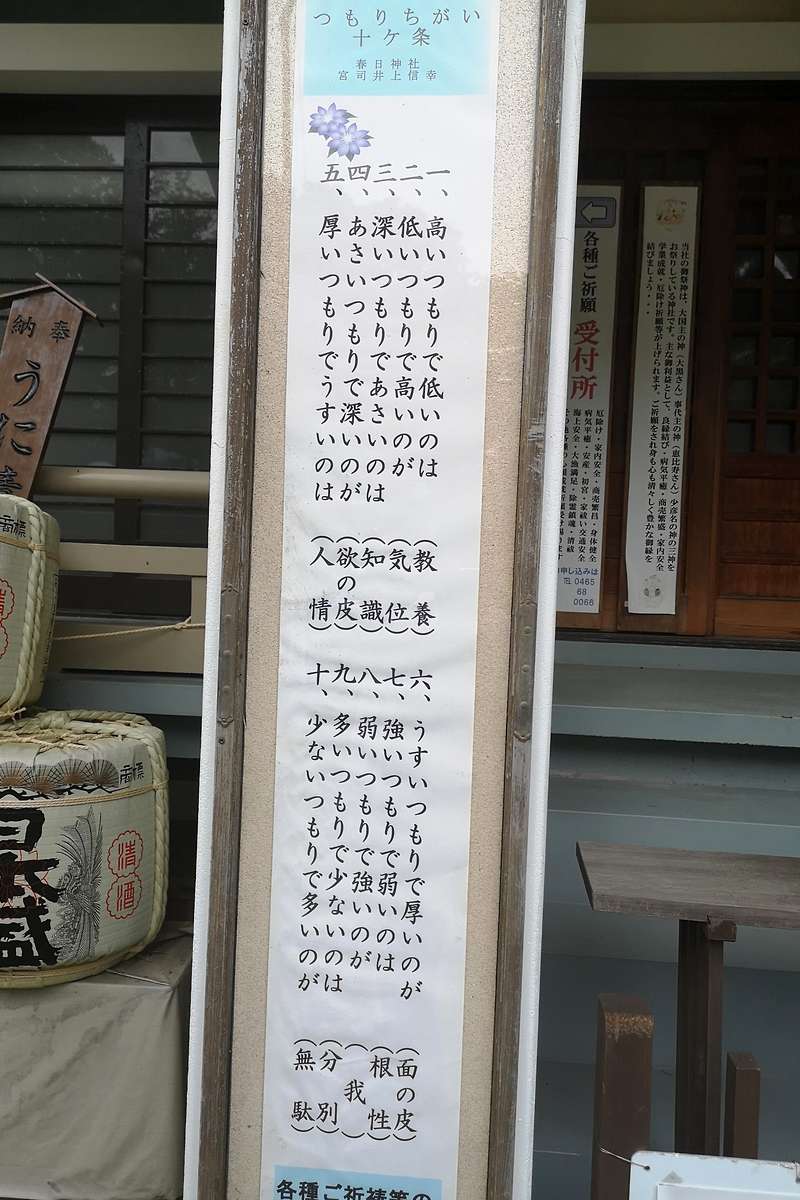 つもりちがい
十ケ条
春日神社
宮司井上信幸
一、高いつもりで低いのは（教養）
二、低いつもりで高いのが（気位）
三、深いつもりであさいのは（知識）
四、あさいつもりで深いのが（欲の皮）
五、厚いつもりでうすいのは（人情）
六、うすいつもりで厚いのが（面の皮）
七、強いつもりで弱いのは（根性）
八、弱いつもりで強いのが（我）
九、多いつもりで少ないのは（分別）
十、少ないつもりで多いのが（無駄）
各種ご祈祷等の
当社の御祭神は、大国主の神（大黒さん）事代主の神（恵比寿さん）少彦名の神の三神を
お祭りしている神社です。主な御利益として、良縁結び・病気平癒・商売繁盛・家内安全
学業成就・厄除け祈願等が上げられます。ご祈願をされ身も心も清々しく豊かな御縁を
結びましょう・・・
各種ご祈願 受付所
厄除け・家内安全・商売繁昌・身体健全
病気平癒・安産・初宮・家祓い交通安全
海上安全・大漁満足・除霊鎮魂・清祓
申し込みは
℡ 0465
68
0066
奉納
うに
標
清
標
清酒
盛